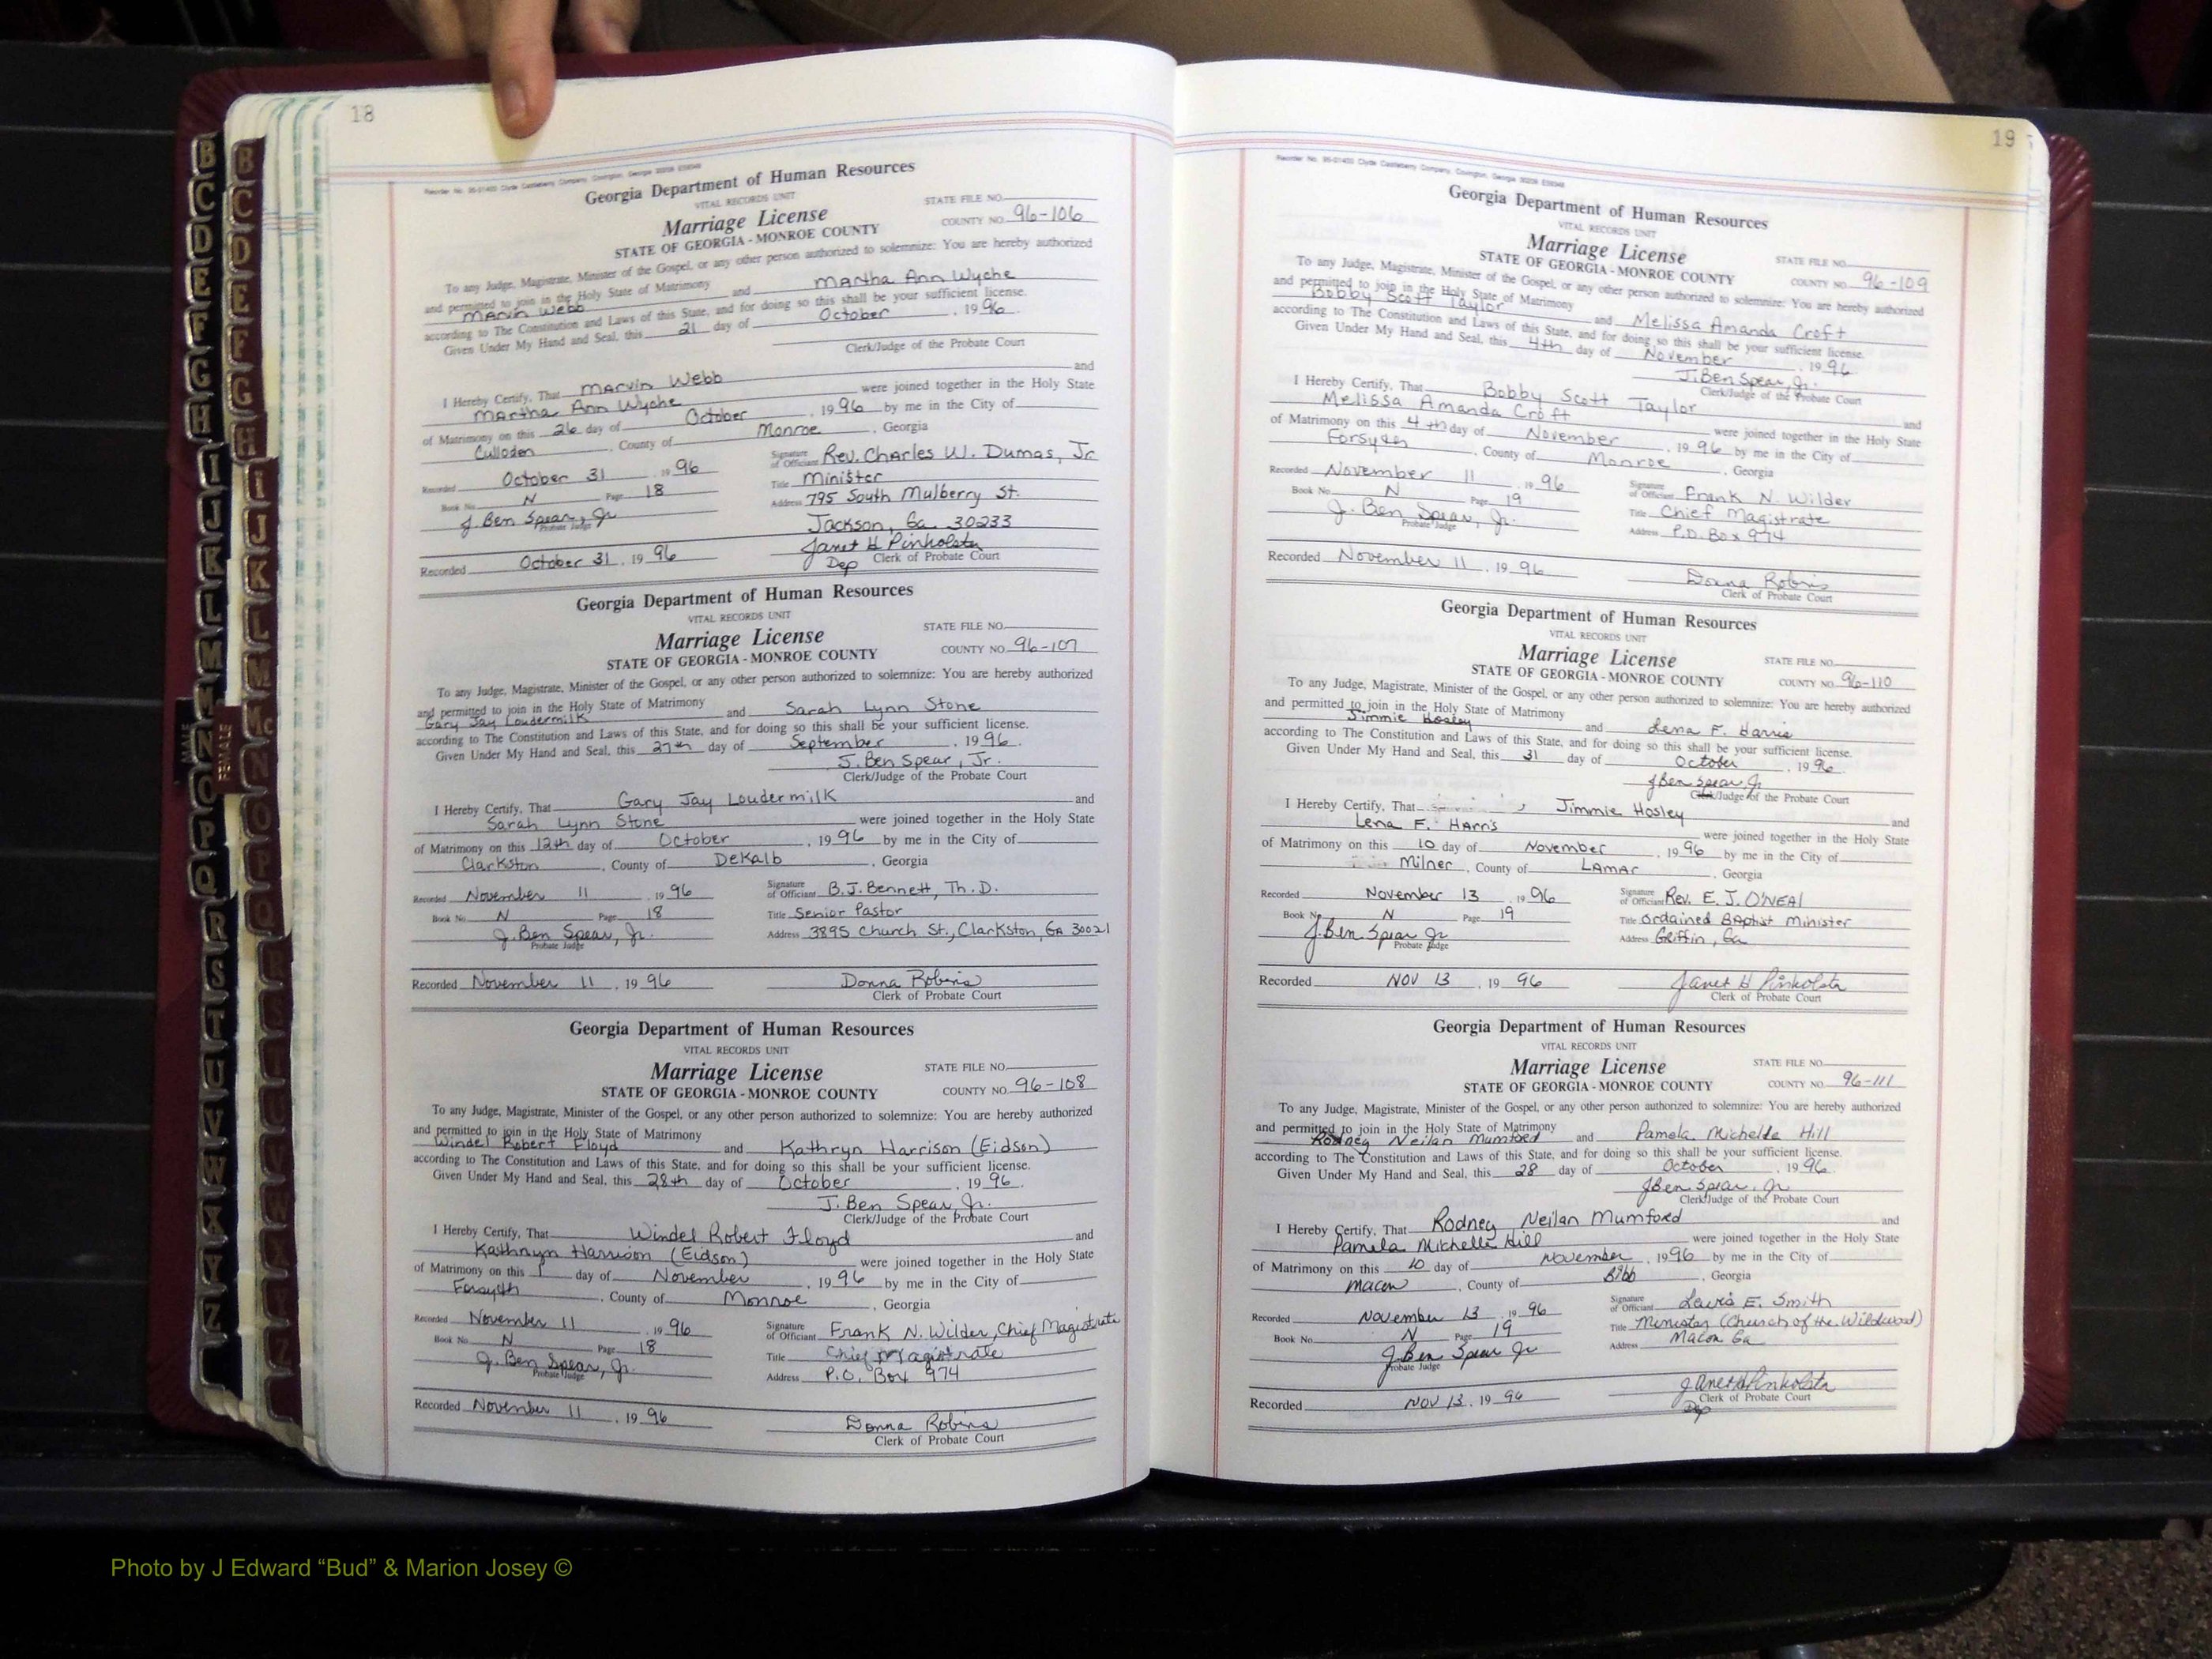 18
Reorder No. 95-01403 Clyde Castleberry Company, Covington, Georgia 30209
Georgia Department of Human Resources
VITAL RECORDS UNIT
Marriage License
STATE FILE NO.
STATE OF GEORGIA - MONROE COUNTY
COUNTY NO. 96-106
To any Judge, Magistrate, Minister of the Gospel, or any other person authorized to solemnize: You are hereby authorized
and permitted to join in the Holy State of Matrimony
Marvin Webb and Martha Ann Wyche
according to The Constitution and Laws of this State, and for doing so this shall be your sufficient license.
Given Under My Hand and Seal, this 21 day of October, 1996.
Clerk/Judge of the Probate Court
I Hereby Certify, That Marvin Webb and
Martha Ann Wyche were joined together in the Holy State
of Matrimony on this 26 day of October, 1996 by me in the City of
Culloden, County of Monroe, Georgia
Recorded October 31, 1996 Signature of Officiant Rev. Charles W. Dumas, Jr
Book No. N Page 18 Title Minister
J. Ben Spear, Jr Address 795 South Mulberry St.
Probate Judge Jackson, Ga 30233
Janet H Pinholster
Recorded October 31, 1996 Dep Clerk of Probate Court
Georgia Department of Human Resources
VITAL RECORDS UNIT
Marriage License
STATE FILE NO.
STATE OF GEORGIA - MONROE COUNTY
COUNTY NO. 96-107
To any Judge, Magistrate, Minister of the Gospel, or any other person authorized to solemnize: You are hereby authorized
and permitted to join in the Holy State of Matrimony
Gary Jay Loudermilk and Sarah Lynn Stone
according to The Constitution and Laws of this State, and for doing so this shall be your sufficient license.
Given Under My Hand and Seal, this 27th day of September, 1996.
J. Ben Spear, Jr.
Clerk/Judge of the Probate Court
I Hereby Certify, That Gary Jay Loudermilk and
Sarah Lynn Stone were joined together in the Holy State
of Matrimony on this 12th day of October, 1996 by me in the City of
Clarkston, County of DeKalb, Georgia
Recorded November 11 1996 Signature of Officiant B.J. Bennett, Th.D.
Book No. N Page 18 Title Senior Pastor
J. Ben Spear, Jr. Address 3895 Church St., Clarkston, GA 30021
Probate Judge
Recorded November 11, 1996 Donna Robins
Clerk of Probate Court
Georgia Department of Human Resources
VITAL RECORDS UNIT
Marriage License
STATE FILE NO.
STATE OF GEORGIA - MONROE COUNTY
COUNTY NO. 96-108
To any Judge, Magistrate, Minister of the Gospel, or any other person authorized to solemnize: You are hereby authorized
and permitted to join in the Holy State of Matrimony
Windel Robert Floyd and Kathryn Harrison (Eidson)
according to The Constitution and Laws of this State, and for doing so this shall be your sufficient license.
Given Under My Hand and Seal, this 28th day of October, 1996.
J. Ben Spear, Jr.
Clerk/Judge of the Probate Court
I Hereby Certify, That Windel Robert Floyd and
Kathryn Harrison (Eidson) were joined together in the Holy State
of Matrimony on this 1 day of November, 1996 by me in the City of
Forsyth, County of Monroe, Georgia
Recorded November 11, 1996 Signature of Officiant Frank N. Wilder, Chief Magistrate
Book No. N Page 18 Title Chief Magistrate
J. Ben Spear, Jr. Address P.O. Box 974
Probate Judge
Recorded November 11, 1996 Donna Robins
Clerk of Probate Court
19
Reorder No. 95-01403 Clyde Castleberry Company, Covington, Georgia 30209
Georgia Department of Human Resources
VITAL RECORDS UNIT
Marriage License
STATE FILE NO.
STATE OF GEORGIA - MONROE COUNTY
COUNTY NO. 96-109
To any Judge, Magistrate, Minister of the Gospel, or any other person authorized to solemnize: You are hereby authorized
and permitted to join in the Holy State of Matrimony
Bobby Scott Taylor and Melissa Amanda Croft
according to The Constitution and Laws of this State, and for doing so this shall be your sufficient license.
Given Under My Hand and Seal, this 4th day of November, 1996.
J. Ben Spear, Jr.
Clerk/Judge of the Probate Court
I Hereby Certify, That Bobby Scott Taylor and
Melissa Amanda Croft were joined together in the Holy State
of Matrimony on this 4th day of November, 1996 by me in the City of
Forsyth, County of Monroe, Georgia
Recorded November 11, 1996 Signature of Officiant Frank N. Wilder
Book No. N Page 19 Title Chief Magistrate
J. Ben Spear, Jr. Address P.O. Box 974
Probate Judge
Recorded November 11, 1996 Donna Robins
Clerk of Probate Court
Georgia Department of Human Resources
VITAL RECORDS UNIT
Marriage License
STATE FILE NO.
STATE OF GEORGIA - MONROE COUNTY
COUNTY NO. 96-110
To any Judge, Magistrate, Minister of the Gospel, or any other person authorized to solemnize: You are hereby authorized
and permitted to join in the Holy State of Matrimony
Jimmie Hosley and Lena F. Harris
according to The Constitution and Laws of this State, and for doing so this shall be your sufficient license.
Given Under My Hand and Seal, this 31 day of October, 1996.
J Ben Spear, Jr
Clerk/Judge of the Probate Court
I Hereby Certify, That Jimmie Hosley and
Lena F. Harris were joined together in the Holy State
of Matrimony on this 10 day of November, 1996 by me in the City of
Milner, County of LAMAR, Georgia
Recorded November 13, 1996 Signature of Officiant Rev. E. J. O'NEAl
Book No. N Page 19 Title Ordained BAptist Minister
J. Ben Spear Jr Address Griffin, Ga
Probate Judge
Recorded NOV 13, 1996 Janet H Pinholster
Clerk of Probate Court
Georgia Department of Human Resources
VITAL RECORDS UNIT
Marriage License
STATE FILE NO.
STATE OF GEORGIA - MONROE COUNTY
COUNTY NO. 96-111
To any Judge, Magistrate, Minister of the Gospel, or any other person authorized to solemnize: You are hereby authorized
and permitted to join in the Holy State of Matrimony
Rodney Neilan Mumford and Pamela Michelle Hill
according to The Constitution and Laws of this State, and for doing so this shall be your sufficient license.
Given Under My Hand and Seal, this 28 day of October, 1996.
J Ben Spear, Jr
Clerk/Judge of the Probate Court
I Hereby Certify, That Rodney Neilan Mumford and
Pamela Michelle Hill were joined together in the Holy State
of Matrimony on this 10 day of November, 1996 by me in the City of
Macon, County of Bibb, Georgia
Recorded November 13, 1996 Signature of Officiant Lewis E. Smith
Book No. N Page 19 Title Minister (Church of the Wildwood)
J. Ben Spear Jr Address Macon Ga
Probate Judge
Janet H Pinholster
Recorded NOV 13, 1996 Clerk of Probate Court
Dep
B C D E F G H I J K L M N O P Q R S T U V W X Y Z
MALE
B C D E F G H I J K L M Mc N O P Q
FEMALE
Photo by J Edward “Bud” & Marion Josey ©